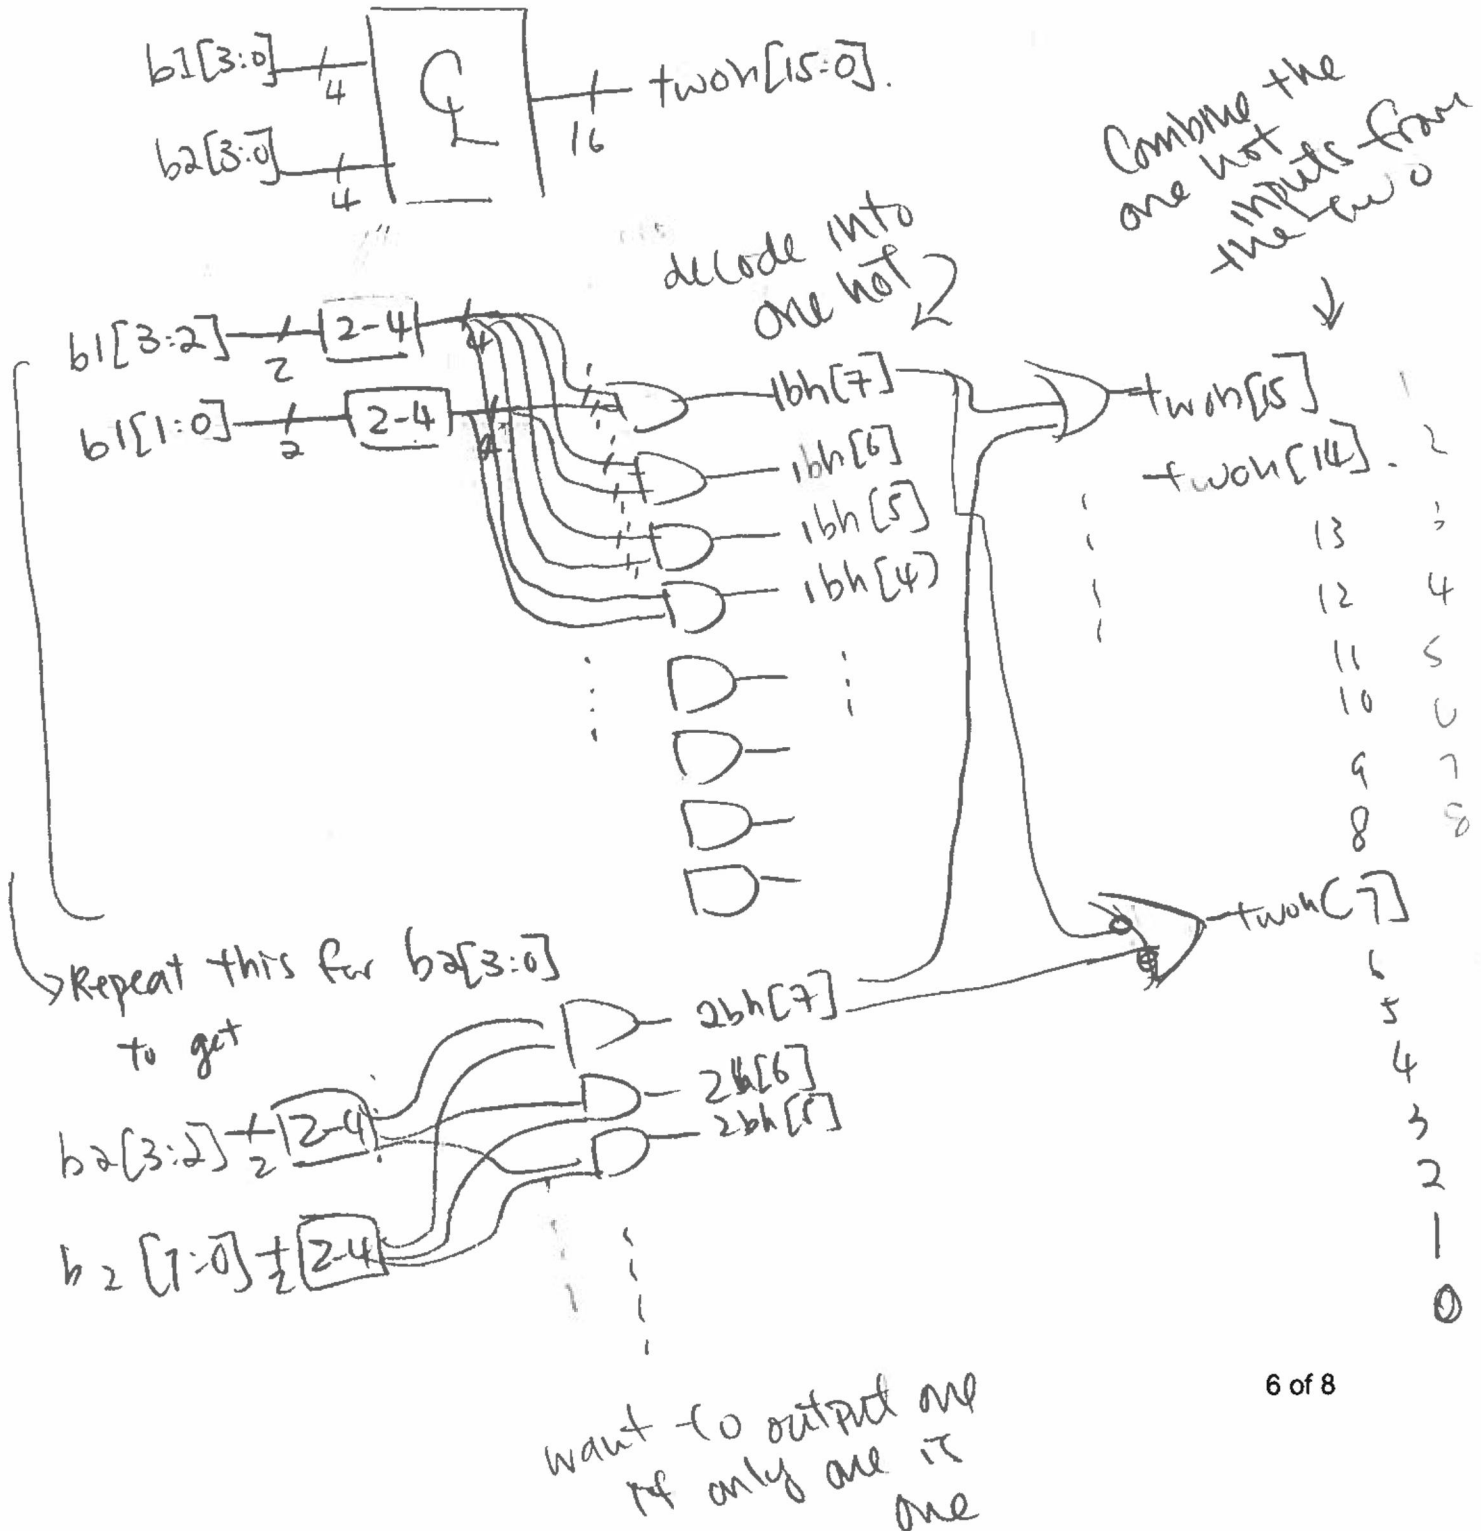 b1[3:0]
4
CL
16
twoh[15:0].
b2[3:0]
4
Combine the
one hot
inputs from
the two
decode into
one hot
b1[3:2]
2
2-4
4
b1[1:0]
2
2-4
4
1bh[7]
1bh[6]
1bh[5]
1bh[4]
twoh[15]
1
twoh[14].
2
13
3
12
4
11
5
10
6
9
7
8
8
twoh[7]
6
5
4
3
2
1
0
Repeat this for b2[3:0]
to get
2bh[7]
2bh[5]
b2[3:2]
2
2-4
b2[1:0]
2
2-4
want to output one
if only one is
one
6 of 8